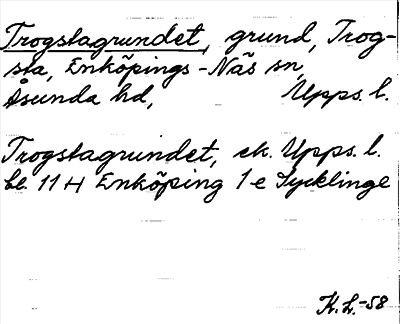 Trogstagrundet, grund, Trog-
sta, Enköpings-Näs sn,
Åsunda hd, Upps. l.
Trogstagrundet, ek. Upps. l.
bl. 11 H Enköping 1 e Sycklinge
K. L. -58